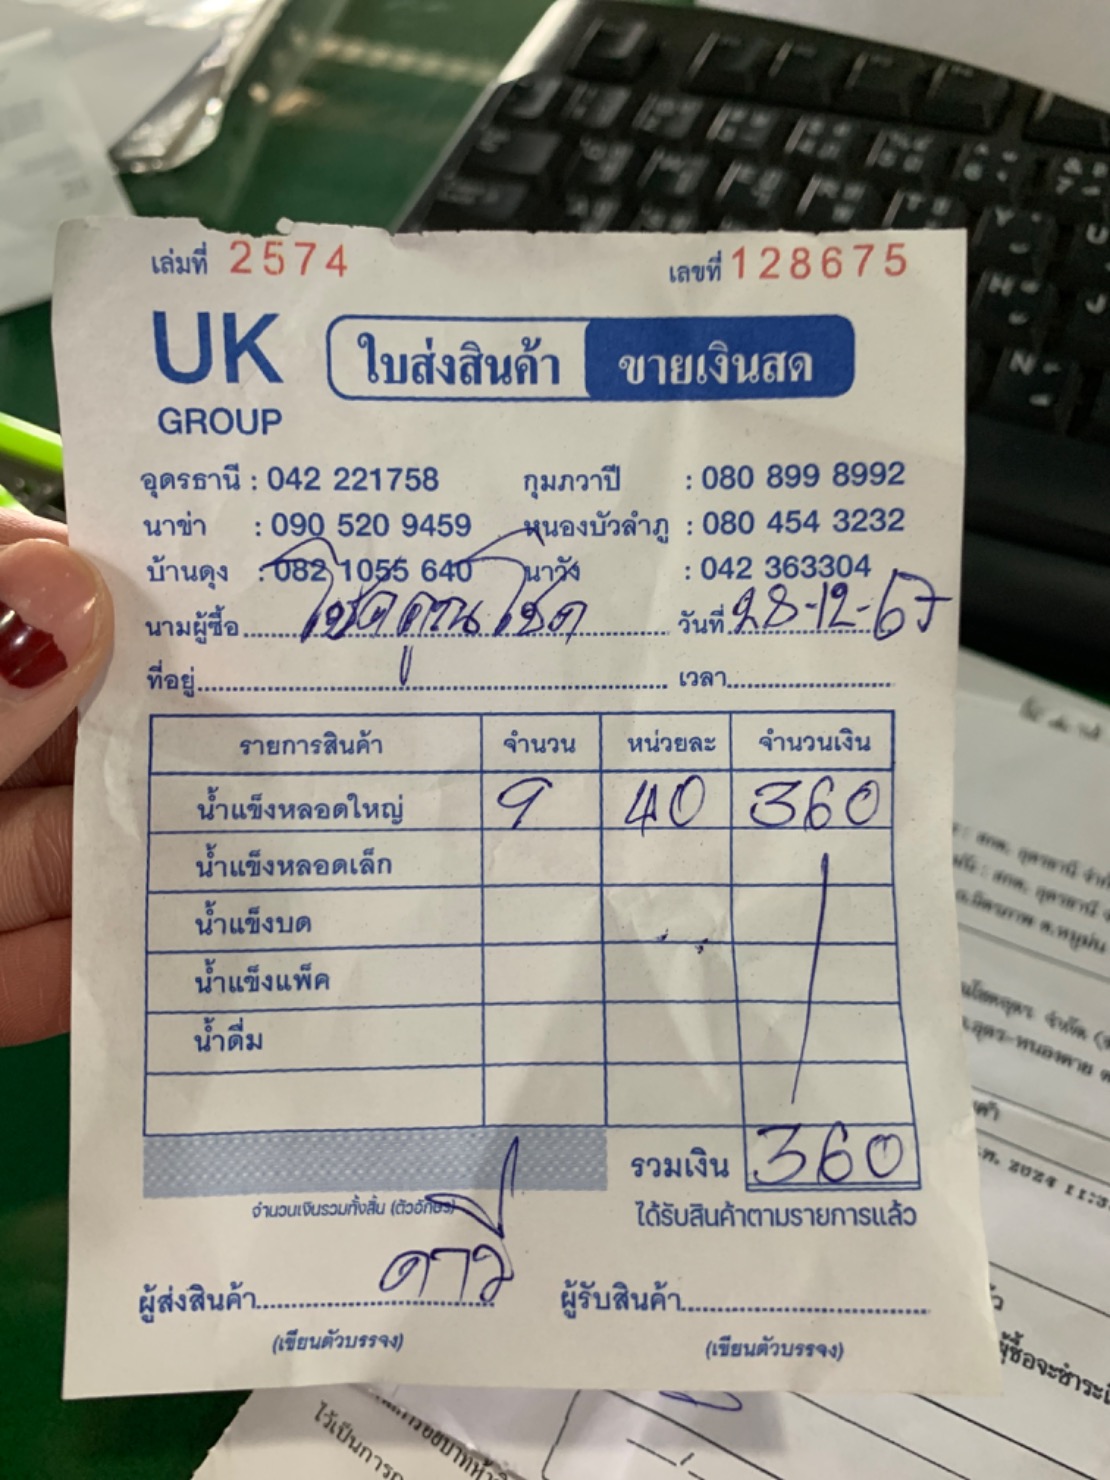 เล่มที่ 2574 เลขที่ 128675
UK GROUP
ใบส่งสินค้า ขายเงินสด
อุดรธานี : 042 221758 กุมภวาปี : 080 899 8992
นาข่า : 090 520 9459 หนองบัวลำภู : 080 454 3232
บ้านดุง : 082 1055 640 นาวัง : 042 363304
นามผู้ซื้อ โชคคูณโชค วันที่ 28-12-67
ที่อยู่ เวลา
รายการสินค้า จำนวน หน่วยละ จำนวนเงิน
น้ำแข็งหลอดใหญ่ 9 40 360
น้ำแข็งหลอดเล็ก
น้ำแข็งบด
น้ำแข็งแพ็ค
น้ำดื่ม
รวมเงิน 360
จำนวนเงินรวมทั้งสิ้น (ตัวอักษร) ได้รับสินค้าตามรายการแล้ว
ผู้ส่งสินค้า ผู้รับสินค้า
(เขียนตัวบรรจง) (เขียนตัวบรรจง)